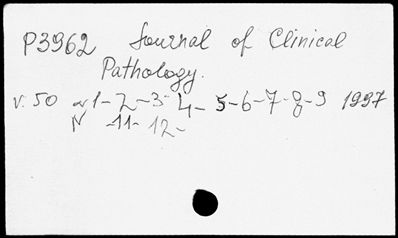 P3962 Journal of Clinical
Pathology.
v. 50 N 1-2-3-4-5-6-7-8-9 1997
N -11-12-